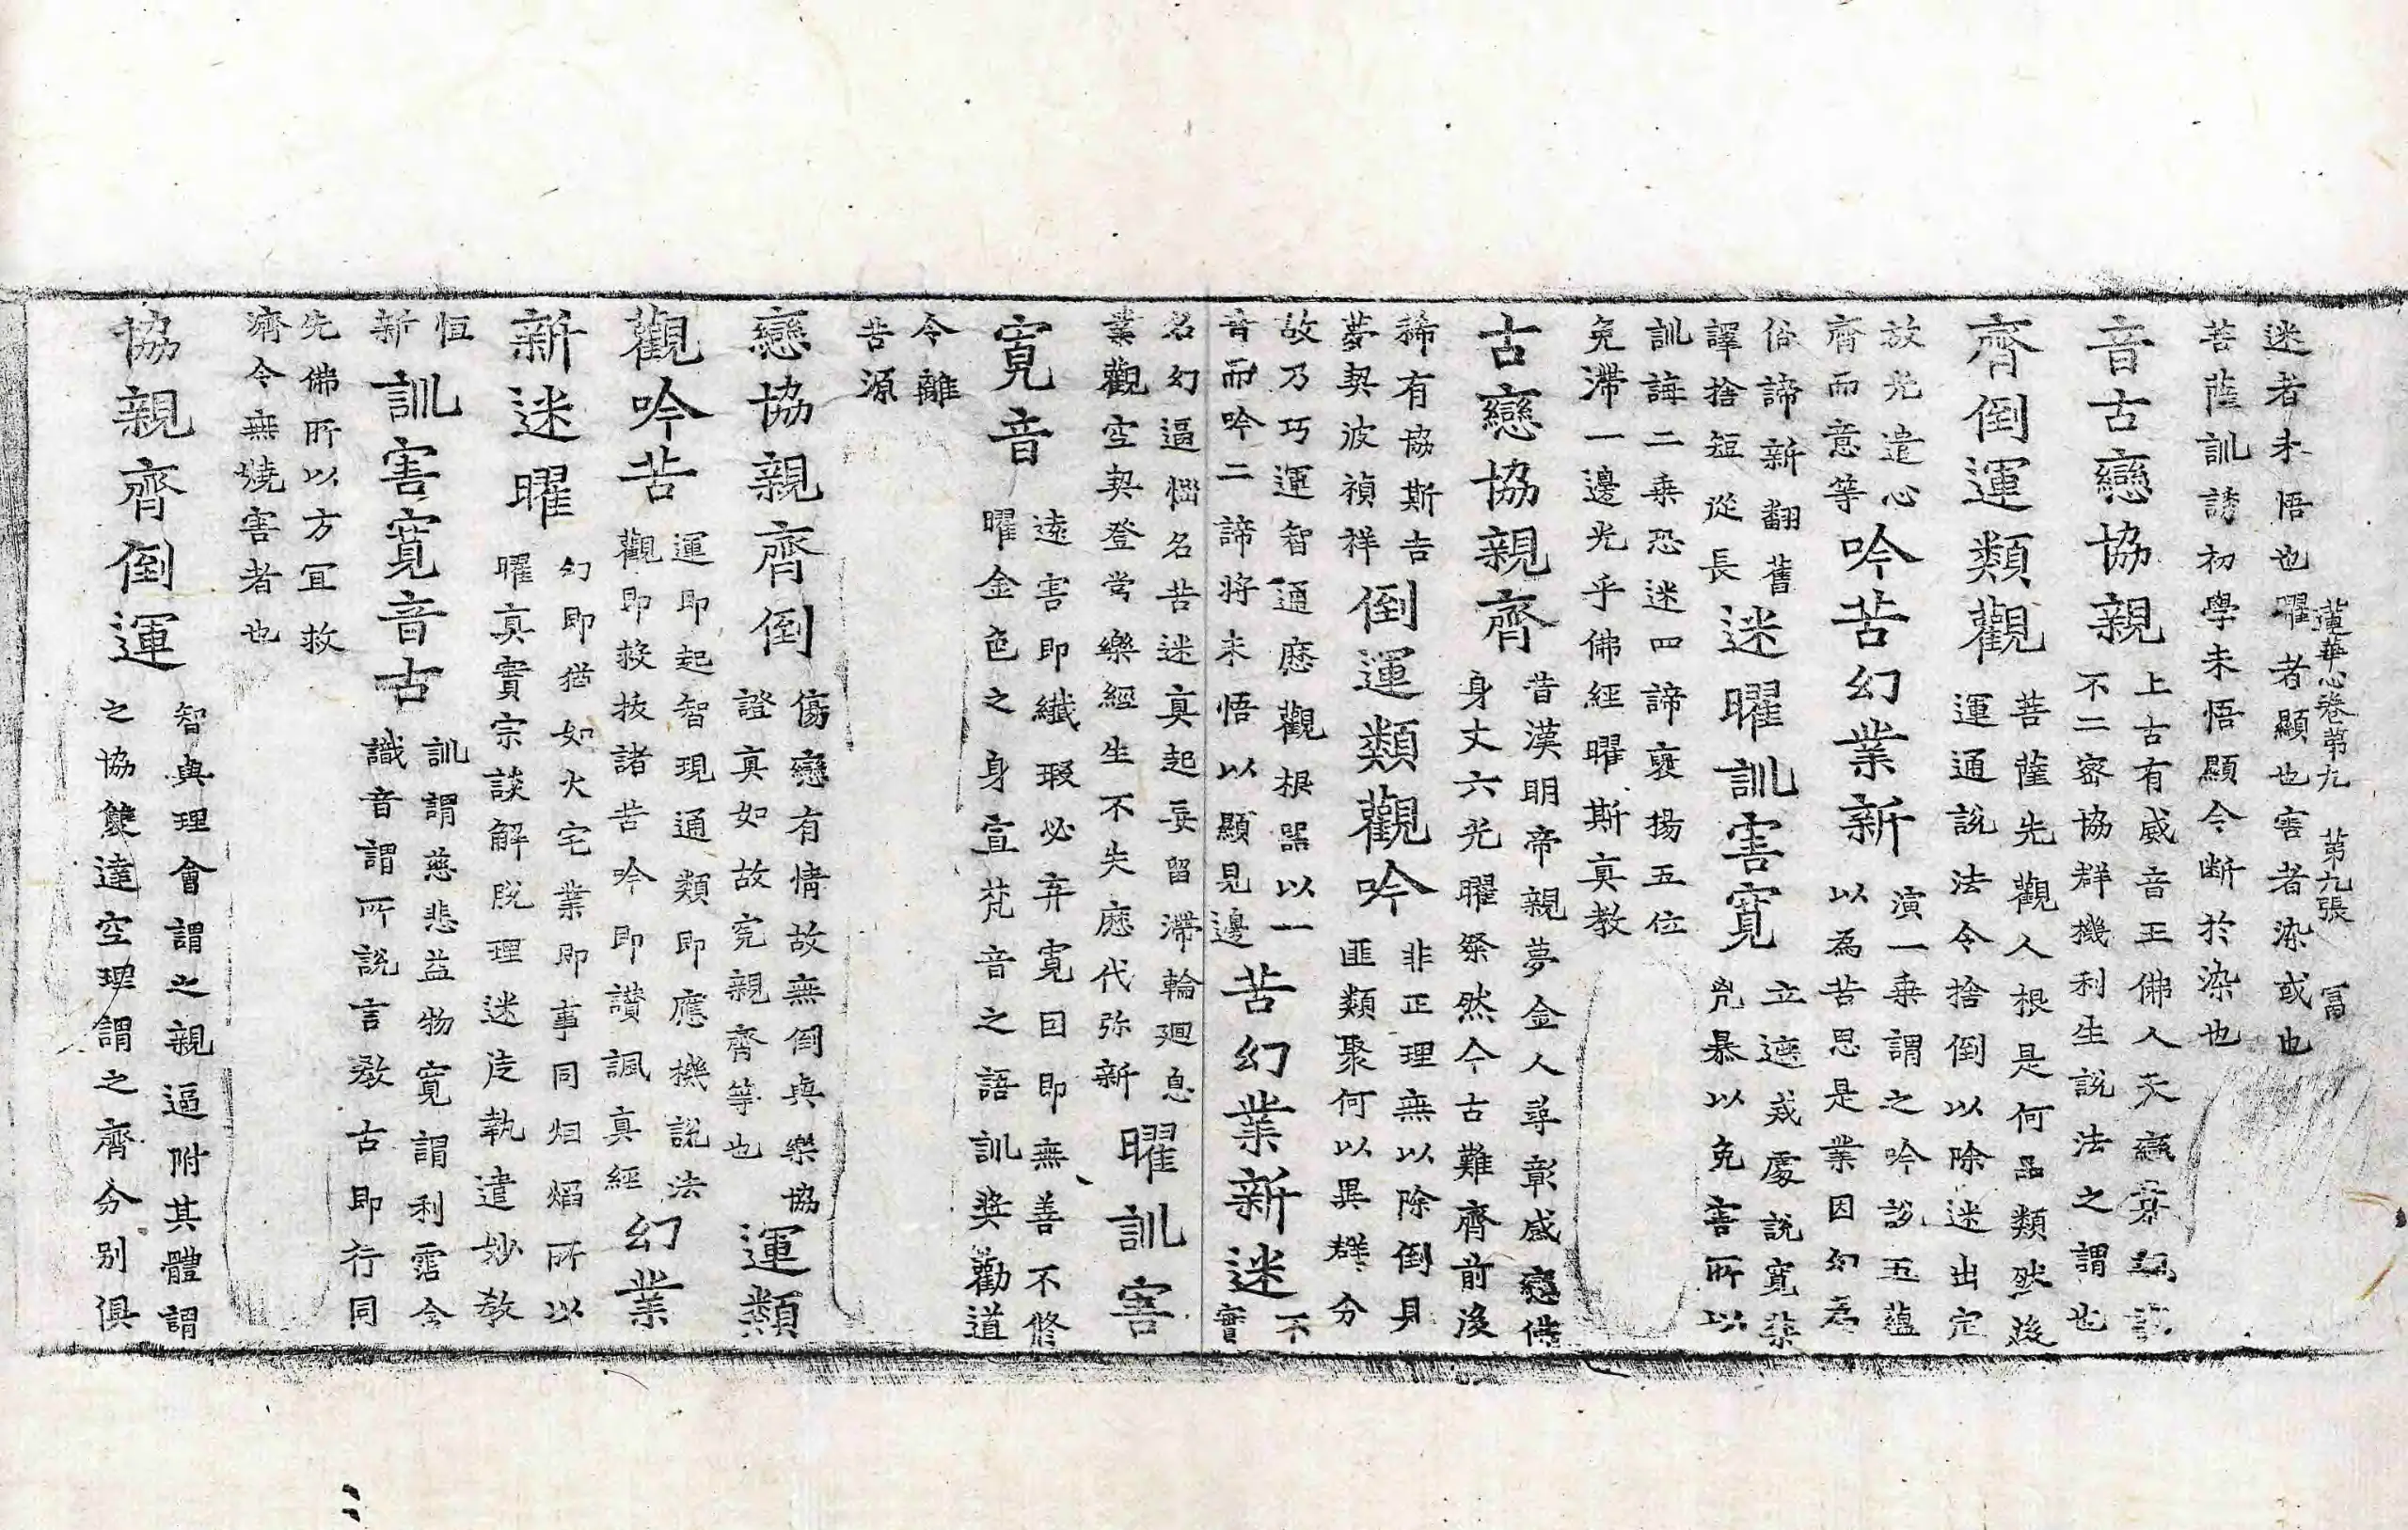 蓮華心卷第九　第九張　冨
迷者未悟也曜者顯也害者染或也
菩薩訓誘初學未悟顯令断於染也
音古戀協親
上古有威音王佛人天戀
不二密協群機利生說法之謂也
齊倒運類觀
菩薩先觀人根是何品類然後
運通說法令捨倒以除迷出定
放光遣心
齊而意等
吟苦幻業新
演一乗謂之吟說五蘊
以為苦思是業因幻為
俗諦新翻舊
譯捨短從長
迷曜訓害寛
立遮戒處說寛柒
兇暴以免害所以
訓誨二乗恐迷四諦褒揚五位
免滯一邊光乎佛經曜斯真教
古戀協親齊
昔漢明帝親夢金人尋彰感戀佛
身丈六光曜粲然今古難齊前後
稀有協斯吉
夢契彼禎祥
倒運類觀吟
非正理無以除倒見
匪類聚何以異群分
故乃巧運智通應觀根器以一
音而吟二諦將未悟以顯見邊
苦幻業新迷
不
實
名幻逼惱名苦迷真起妄留滯輪迴息
業觀空契登常樂經生不失應代弥新
曜訓害
寛音
遠害即纖瑕必弃寛囙即無善不修
曜金色之身宣梵音之語訓奬勸道
令離
苦源
戀協親齊倒
傷戀有情故無倒與樂協
證真如故究親齊等也
運類
觀吟苦
運即起智現通類即應機說法
觀即救抜諸苦吟即讃諷真經
幻業
新迷曜
幻即猶如火宅業即事同烟焰所以
曜真實宗談解脫理迷徒執遣妙教
恒
新
訓害寛音古
訓謂慈悲益物寛謂利霑含
識音謂所說言教古即行同
先佛所以方冝救
濟令無燒害者也
協親齊倒運
智與理會謂之親逼附其體謂
之協雙達空理謂之齊分別俱